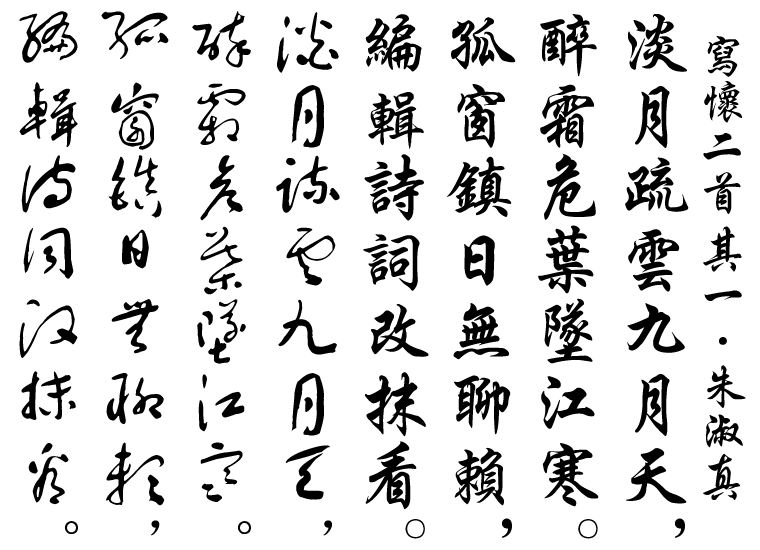 寫懷二首其一・朱淑真
淡月疏雲九月天，
醉霜危葉墜江寒。
孤窗鎮日無聊賴，
編輯詩詞改抹看。
淡月疏雲九月天，
醉霜危葉墜江寒。
孤窗鎮日無聊賴，
編輯詩詞改抹看。